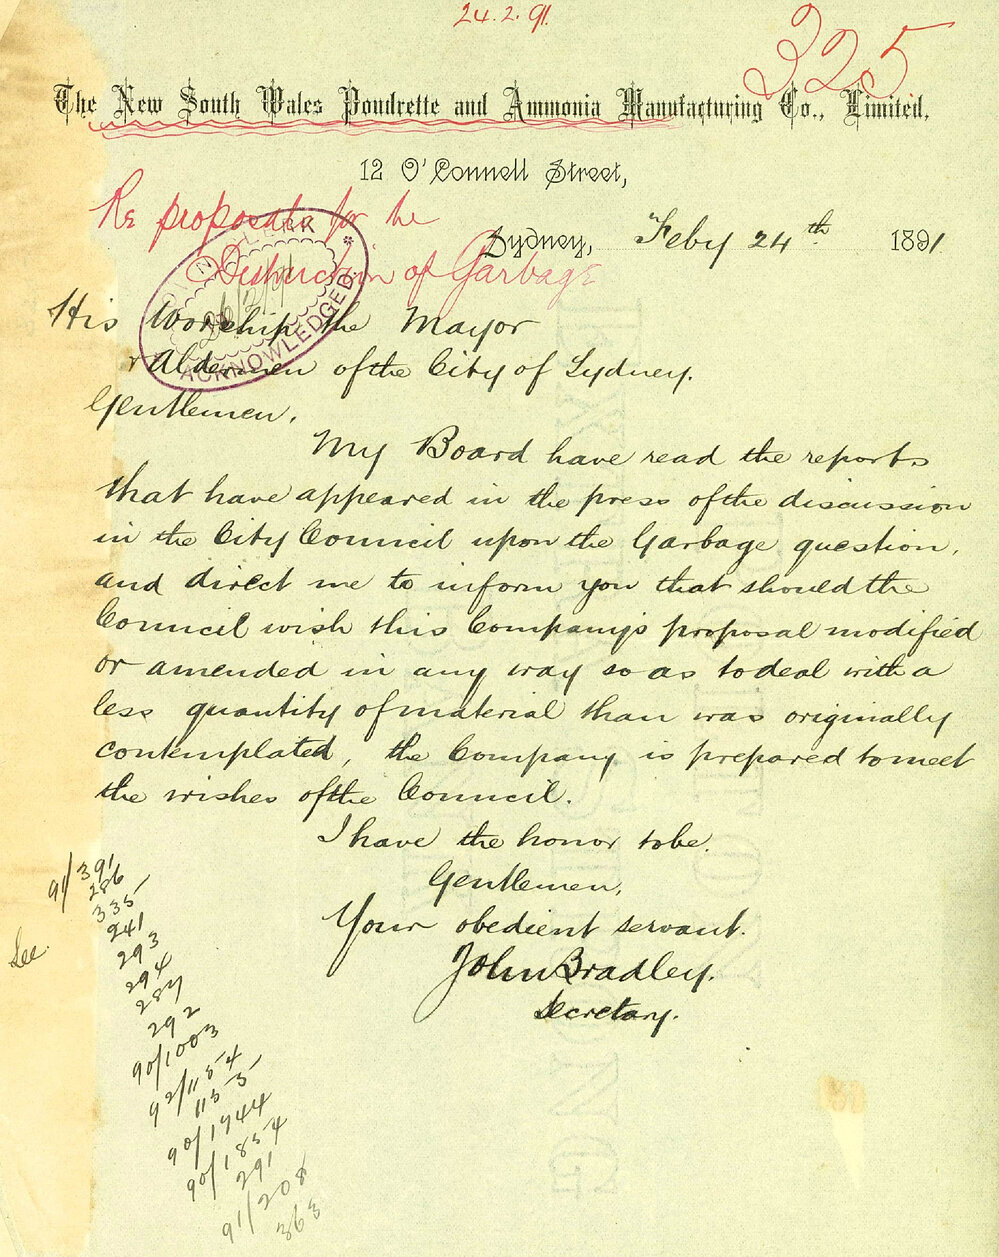 24.2.91.
325
The New South Wales Poudrette and Ammonia Manufacturing Co., Limited,
12 O'Connell Street,
Re proposals for the
Destruction of Garbage
Sydney, Feby 24th 1891
TOWN CLERK
ACKNOWLEDGED
His Worship the Mayor
& Aldermen of the City of Sydney.
Gentlemen,
My Board have read the reports
that have appeared in the press of the discussion
in the City Council upon the Garbage question,
and direct me to inform you that should the
Council wish this Company's proposal modified
or amended in any way so as to deal with a
less quantity of material than was originally
contemplated, the Company is prepared to meet
the wishes of the Council.
I have the honor to be.
Gentlemen,
Your obedient servant.
John Bradley.
Secretary.
See
91/391
286
335
241
293
294
287
292
90/1003
92/1154
1155
90/1944
90/1854
291
91/208
363